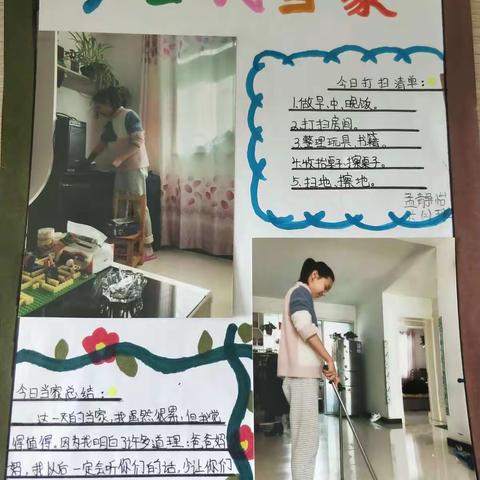 当家
今日打扫清单：
1.做早,中,晚饭。
2.打扫房间。
3.整理玩具,书籍。
4.收拾桌子,擦桌子。
5.扫地、擦地。
孟静怡
今日当家总结：
这一天的当家,我虽然很累,但我觉
得值得。因为我明白了许多道理：爸爸妈
妈,我以后一定会听你们的话,少让你们